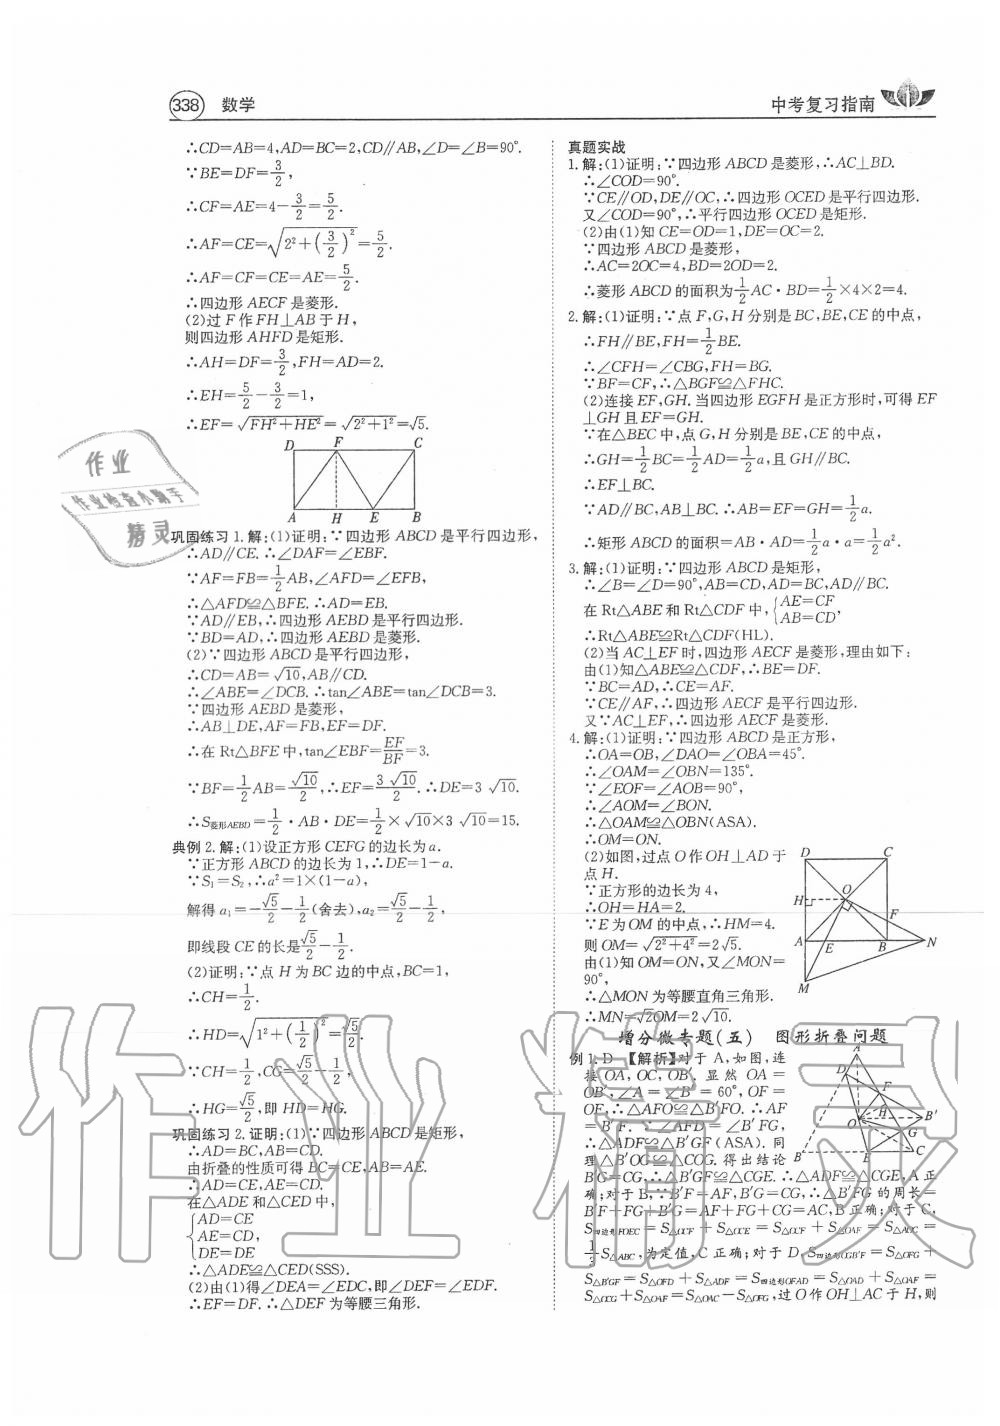 338 数学
中考复习指南
∴CD=AB=4,AD=BC=2,CD∥AB,∠D=∠B=90°.
∵BE=DF=3/2,
∴CF=AE=4-3/2=5/2.
∴AF=CE=√(2²+(3/2)²)=5/2.
∴AF=CF=CE=AE=5/2.
∴四边形 AECF 是菱形.
(2)过 F 作 FH⊥AB 于 H,
则四边形 AHFD 是矩形.
∴AH=DF=3/2,FH=AD=2.
∴EH=5/2-3/2=1,
∴EF=√(FH²+HE²)=√(2²+1²)=√5.
D F C
A H E B
巩固练习 1. 解:(1)证明:∵四边形 ABCD 是平行四边形,
∴AD∥CE.∴∠DAF=∠EBF.
∵AF=FB=1/2AB,∠AFD=∠EFB,
∴△AFD≌△BFE.∴AD=EB.
∵AD∥EB,∴四边形 AEBD 是平行四边形.
∵BD=AD,∴四边形 AEBD 是菱形.
(2)∵四边形 ABCD 是平行四边形,
∴CD=AB=√10,AB∥CD.
∴∠ABE=∠DCB.∴tan∠ABE=tan∠DCB=3.
∵四边形 AEBD 是菱形,
∴AB⊥DE,AF=FB,EF=DF.
∴在 Rt△BFE 中,tan∠EBF=EF/BF=3.
∵BF=1/2AB=√10/2,∴EF=3√10/2.∴DE=3√10.
∴S菱形AEBD=1/2·AB·DE=1/2×√10×3√10=15.
典例 2. 解:(1)设正方形 CEFG 的边长为 a.
∵正方形 ABCD 的边长为 1,∴DE=1-a.
∵S₁=S₂,∴a²=1×(1-a),
解得 a₁=-√5/2-1/2(舍去),a₂=√5/2-1/2,
即线段 CE 的长是√5/2-1/2.
(2)证明:∵点 H 为 BC 边的中点,BC=1,
∴CH=1/2.
∴HD=√(1²+(1/2)²)=√5/2.
∵CH=1/2,CG=√5/2-1/2,
∴HG=√5/2,即 HD=HG.
巩固练习 2. 证明:(1)∵四边形 ABCD 是矩形,
∴AD=BC,AB=CD.
由折叠的性质可得 BC=CE,AB=AE.
∴AD=CE,AE=CD.
在△ADE 和△CED 中,
AD=CE
AE=CD,
DE=DE
∴△ADE≌△CED(SSS).
(2)由(1)得∠DEA=∠EDC,即∠DEF=∠EDF.
∴EF=DF.∴△DEF 为等腰三角形.
真题实战
1. 解:(1)证明:∵四边形 ABCD 是菱形,∴AC⊥BD.
∴∠COD=90°.
∵CE∥OD,DE∥OC,∴四边形 OCED 是平行四边形.
又∠COD=90°,∴平行四边形 OCED 是矩形.
(2)由(1)知 CE=OD=1,DE=OC=2.
∵四边形 ABCD 是菱形,
∴AC=2OC=4,BD=2OD=2.
∴菱形 ABCD 的面积为1/2AC·BD=1/2×4×2=4.
2. 解:(1)证明:∵点 F,G,H 分别是 BC,BE,CE 的中点,
∴FH∥BE,FH=1/2BE.
∴∠CFH=∠CBG,FH=BG.
∵BF=CF,∴△BGF≌△FHC.
(2)连接 EF,GH. 当四边形 EGFH 是正方形时,可得 EF
⊥GH 且 EF=GH.
∵在△BEC 中,点 G,H 分别是 BE,CE 的中点,
∴GH=1/2BC=1/2AD=1/2a,且 GH∥BC.
∴EF⊥BC.
∵AD∥BC,AB⊥BC.∴AB=EF=GH=1/2a.
∴矩形 ABCD 的面积=AB·AD=1/2a·a=1/2a².
3. 解:(1)证明:∵四边形 ABCD 是矩形,
∴∠B=∠D=90°,AB=CD,AD=BC,AD∥BC.
在 Rt△ABE 和 Rt△CDF 中,{AE=CF
AB=CD,
∴Rt△ABE≌Rt△CDF(HL).
(2)当 AC⊥EF 时,四边形 AECF 是菱形,理由如下:
由(1)知△ABE≌△CDF,∴BE=DF.
∵BC=AD,∴CE=AF.
∵CE∥AF,∴四边形 AECF 是平行四边形.
又∵AC⊥EF,∴四边形 AECF 是菱形.
4. 解:(1)证明:∵四边形 ABCD 是正方形,
∴OA=OB,∠DAO=∠OBA=45°.
∴∠OAM=∠OBN=135°.
∵∠EOF=∠AOB=90°,
∴∠AOM=∠BON.
∴△OAM≌△OBN(ASA).
∴OM=ON.
(2)如图,过点 O 作 OH⊥AD 于
点 H.
∵正方形的边长为 4,
∴OH=HA=2.
∵E 为 OM 的中点,∴HM=4.
则 OM=√(2²+4²)=2√5.
由(1)知 OM=ON,又∠MON=
90°,
∴△MON 为等腰直角三角形.
∴MN=√2OM=2√10.
D C
H O F
A E B N
M
增分微专题(五) 图形折叠问题
例 1. D 【解析】对于 A,如图,连
接 OA,OC,OB′. 显然 OA=
OB′,∠A=∠B′=60°,OF=
OF,∴△AFO≌△B′FO.∴AF
=B′F.∵∠DFA=∠B′FG,
∴△ADF≌△B′GF(ASA). 同
理△B′OG≌△COG. 得出结论
B′G=CG,∴△B′GF≌△CGE.∴△ADF≌△CGE,A 正
确;对于 B,∵B′F=AF,B′G=CG,∴△B′FG 的周长=
B′F+FG+B′G=AF+FG+CG=AC,B 正确;对于 C,
S四边形FOEC=S△OCF+S△OCE=S△OCF+S△OAF=S△AOC=
1/3S△ABC,为定值,C 正确;对于 D,S四边形OGB′F=S△OFG+
S△B′GF=S△OFD+S△ADF=S四边形OFAD=S△OAD+S△OAF=
S△OCG+S△OAF=S△OAC-S△OFG,过 O 作 OH⊥AC 于 H,则
A
D F
H B′
O G
B E C
作业
作业检查小助手
精灵
作业精灵